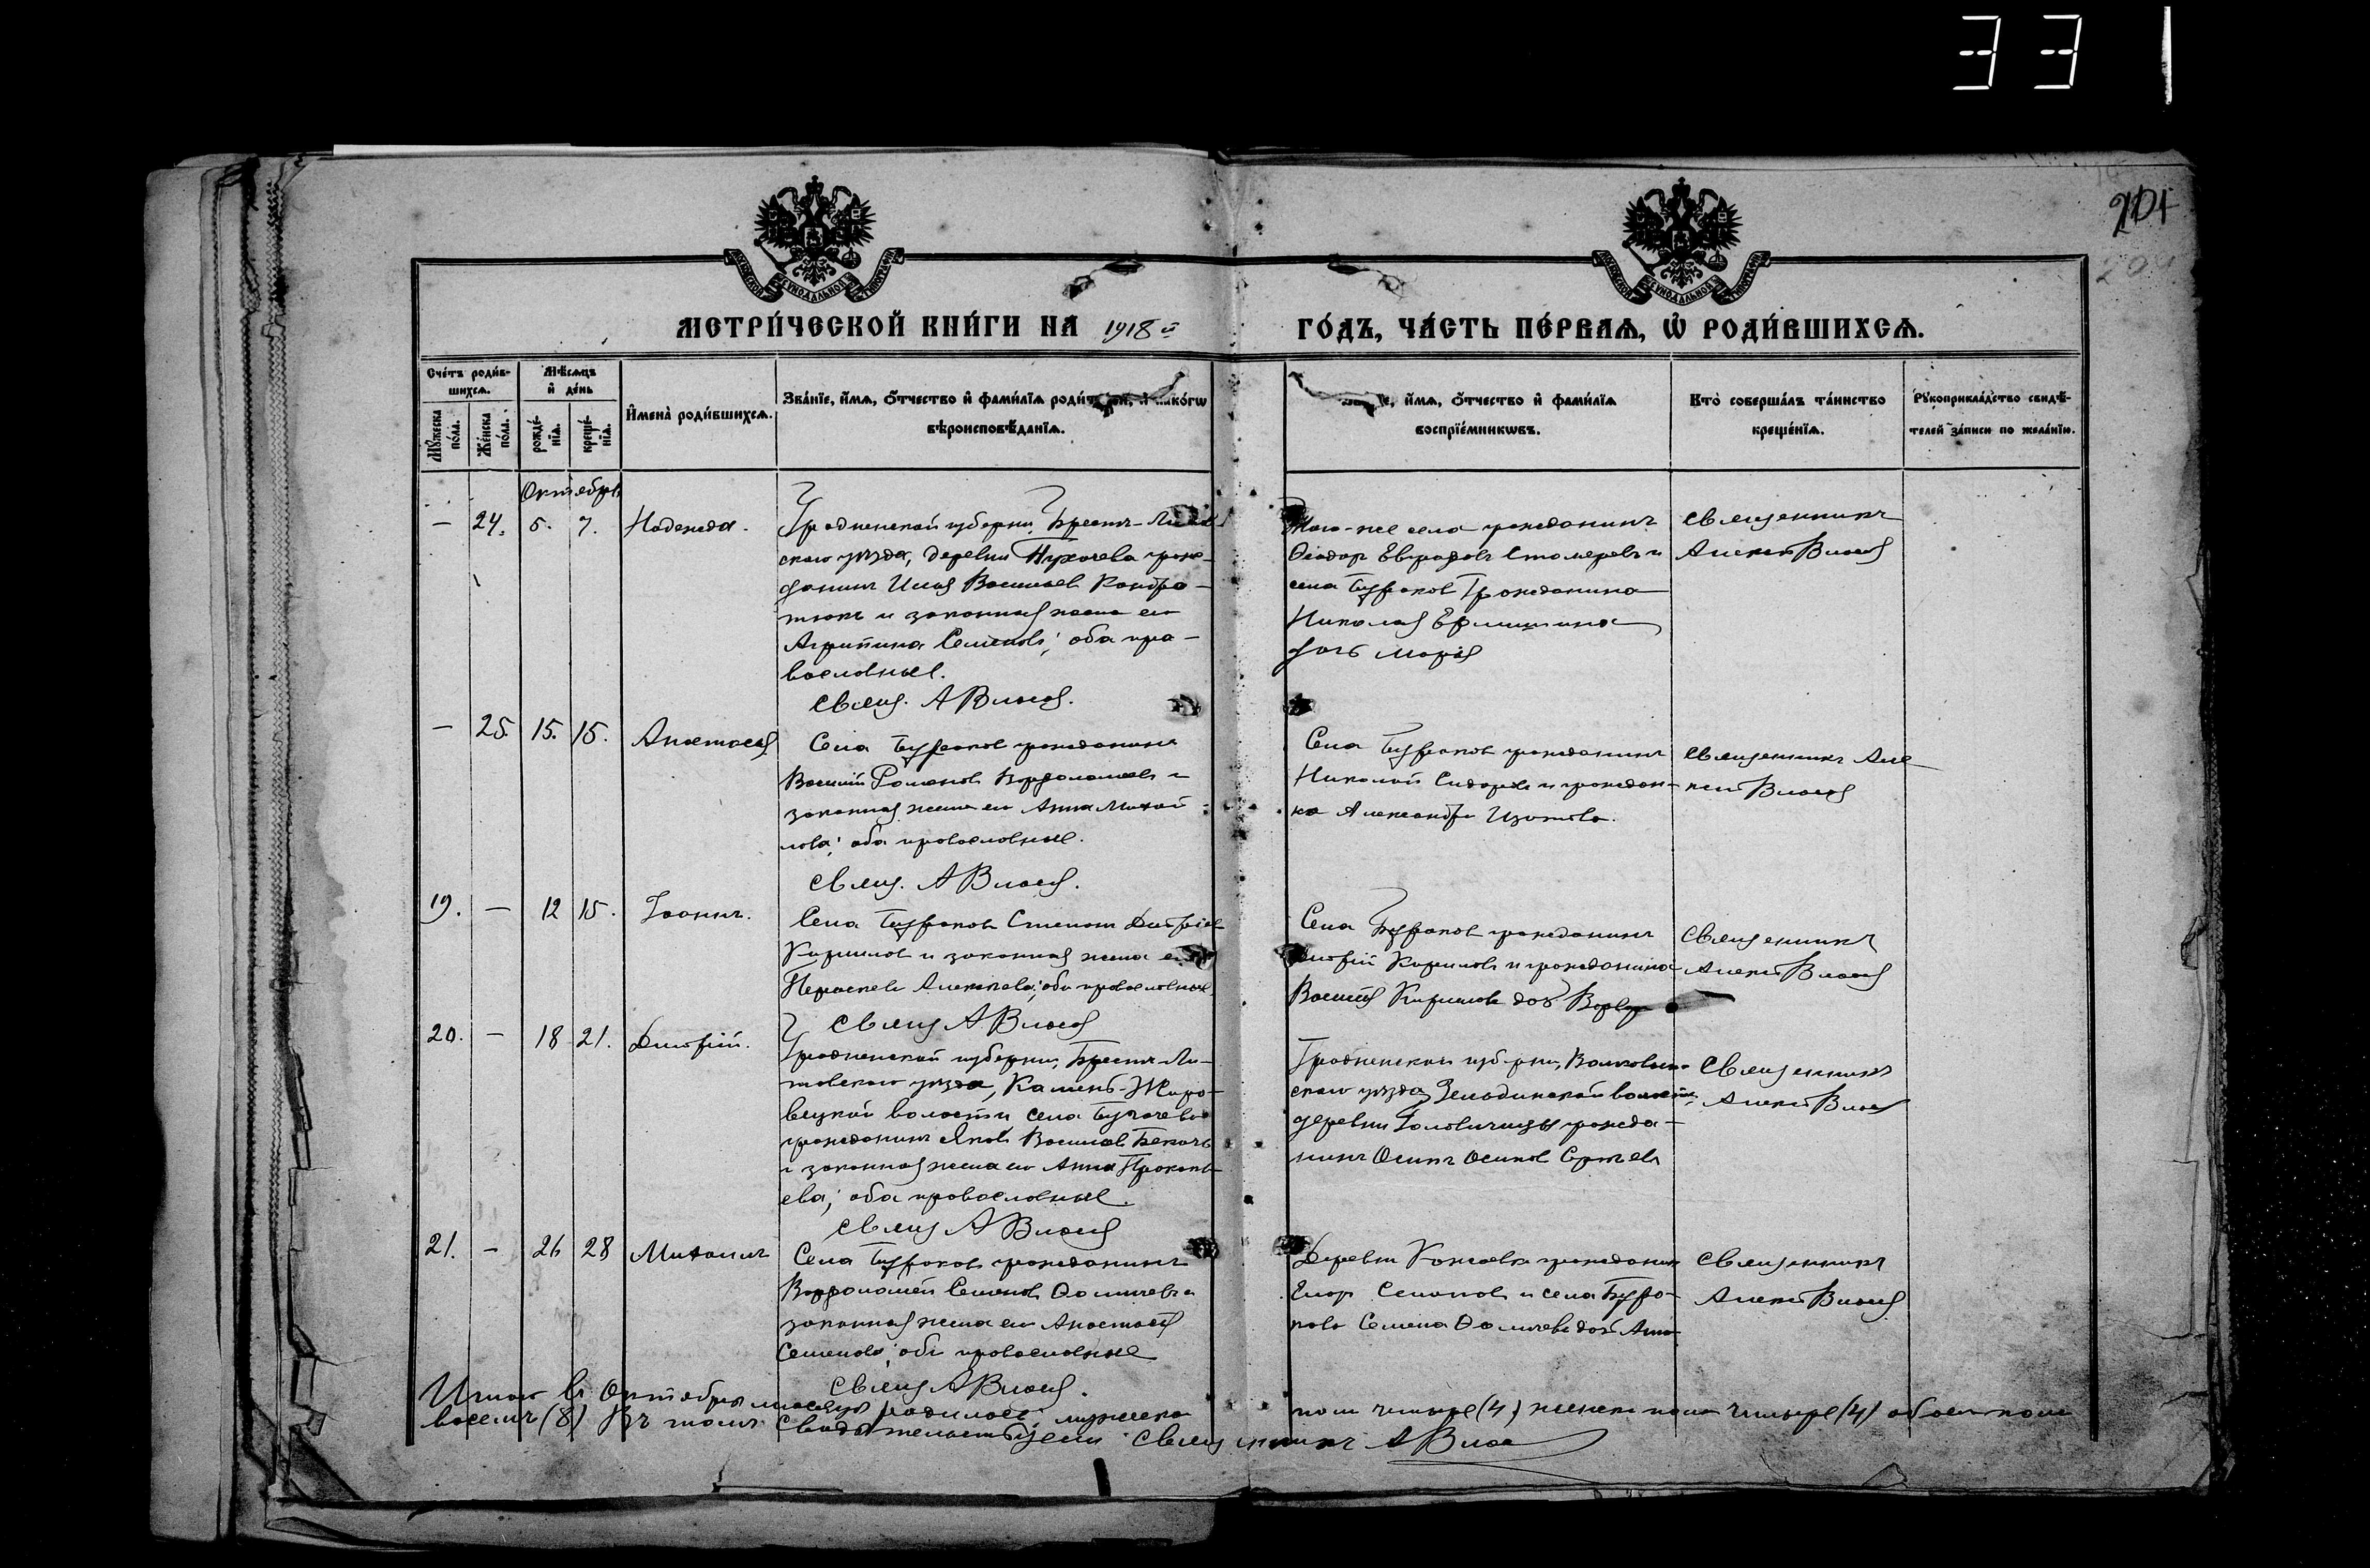 331
204
МЕТРИ́ЧЕСКОЙ КНИ́ГИ НА 1918 й
ГО́ДЪ, ЧА́СТЬ ПЕ́РВАѦ, Ѡ РОДИ́ВШИХСѦ.
Сче́тъ роди́в-
шихсѧ.
Мꙋ́жеска по́ла.
Же́нска по́ла.
Мѣ́сѧцъ
и҆ де́нь
рожде́-
нїѧ.
креще́-
нїѧ.
И҆мена̀ роди́вшихсѧ.
Зва́нїе, и҆́мѧ, ѻ҆́тчество и҆ фами́лїѧ и҆ како́гѡ
вѣроисповѣ́данїѧ.
и҆́мѧ, ѻ҆́тчество и҆ фами́лїѧ
воспрїе́мникѡвъ.
Кто̀ соверша́лъ та́инство
креще́нїѧ.
Рꙋкоприкла́дство свидѣ́-
телей за́писи по жела́нїю.
Октябрь
— 24. 5. 7. Надежда.
Гродненской губерни, Брестъ-
скаго уѣзда, деревни Пухачева граж-
данинъ Илія Васильевъ Кондра-
тюкъ и законная жена его
Агрипина Семенова; оба пра-
вославные.
Свящ. А Власов.
Того-же села гражданинъ
Ѳеодоръ и
села Бураковъ Гражданина
Николая
дочь Марія
Священникъ
Алексѣй Власов
— 25. 15. 15. Анастасія
Села Бураковъ гражданинъ
Василій Романовъ и
законная жена его Анна Михай
лова; оба православные.
Свящ. А Власов.
Села Бураковъ гражданинъ
Николай Сидоровъ и граждан-
ка Александра Изотова.
Священникъ Але-
ксѣй Власов
19. — 12 15. Іоаннъ.
Села Бураковъ Стефанъ Димитріевъ
Кириловъ и законная жена его
Параскева Алексѣева; оба православные.
Свящ А Власов
Села Бураковъ гражданинъ
Димитрій Кириловъ и гражданина
Василія Кирилова доч
Священникъ
Алексѣй Власов
20. — 18 21. Димитрій.
Гродненской губерни, Брестъ-Ли-
товскаго уѣзда, Каменъ-Жиро-
вецкой волости села
гражданинъ Яковъ Васильевъ
и законная жена его Анна Прокопь-
ева; оба православные.
Свящ А Власов
Гродненской губерни, Волковы-
скаго уѣзда, волости,
деревни гражда-
нинъ Осипъ Осиповъ Сергѣевъ
Священникъ
Алексѣй Власов
21. — 26 28 Михаилъ
Села Бураковъ гражданинъ
Варѳоломей Семеновъ и
законная жена его Анастасія
Семенова; оба православные
Свящ А Власов.
Деревни гражданинъ
Егоръ Семеновъ и села Бура-
кова Семена доч Анна
Священникъ
Алексѣй Власов
Итого въ Октябрѣ мѣсяцѣ родилось: мужеска
пола четыре (4) женска пола четыре (4) обоего пола
восемь (8) Въ томъ свидѣтельствуемъ Священникъ А Власов